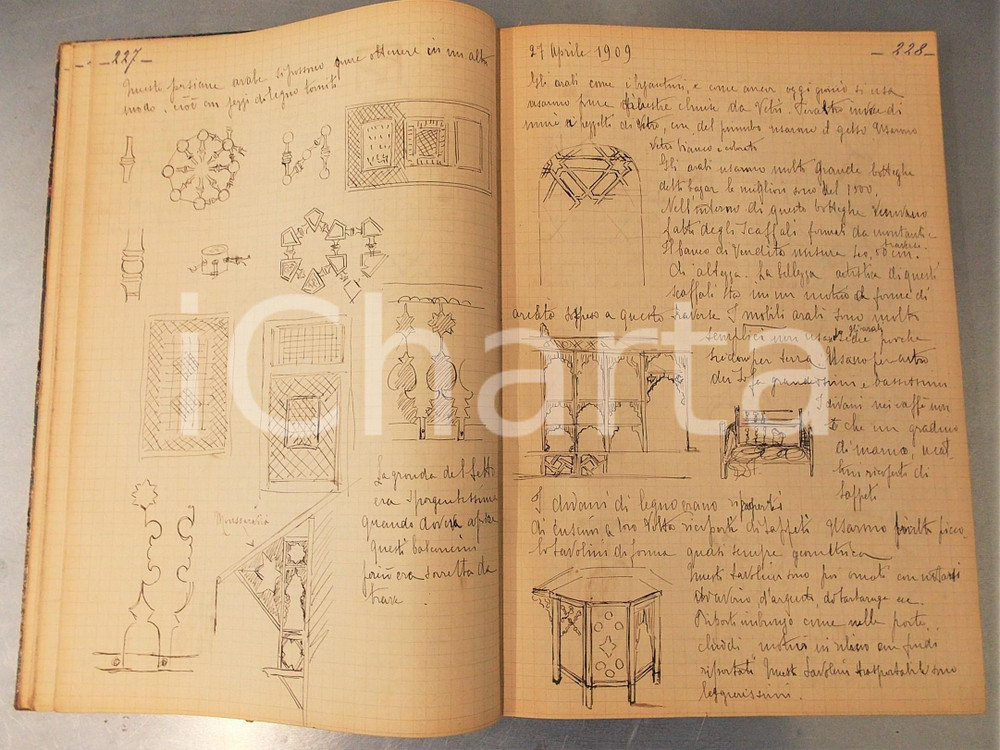 227
Queste persiane arabe si possono pure ottenere in un altro
modo, cioè con pezzi di legno torniti
Moussaraba
La gronda del tetto
era sporgentissima
quando doveva
questi balconcini
però era sorretta da
trave.
27 Aprile 1909
228
Gli arabi come i bizantini, e come ancor oggi quivi si usa
usarono pure finestre chiuse da vetri. Però invece di
unire i pezzetti di vetro, con del piombo usarono il gesso Usarono
vetro bianco e colorato
Gli arabi usarono molto grande botteghe
detti bazar le migliori sono del 1500.
Nell'interno di queste botteghe venivano
fatti degli scaffali formati da montanti e
traverse.
Il banco di vendita misura 50 cm.
di altezza. La bellezza artistica di questi
scaffali sta in un motivo a forme di
archetto a queste traverse I mobili arabi sono molto
semplici non usano sedie perchè
gli arabi
siedono per terra Usano per altro
dei sofà grandissimi e bassissimi
I divani nei caffè non
che un gradino
di marmo,
ricoperto di
tappeti
I divani di legno erano ricoperti
di cuscini a loro volta ricoperti di tappeti Usarono molto picco-
li tavolini di forma quasi sempre geometrica
Questi tavolini sono poi ornati con intarsi
d'avorio d'argento, di tartaruga ecc.
come nelle porte,
chiodi motivi in rilievo su fondi
riportati Questi tavolini trasportabili sono
leggerissimi.
iCharta